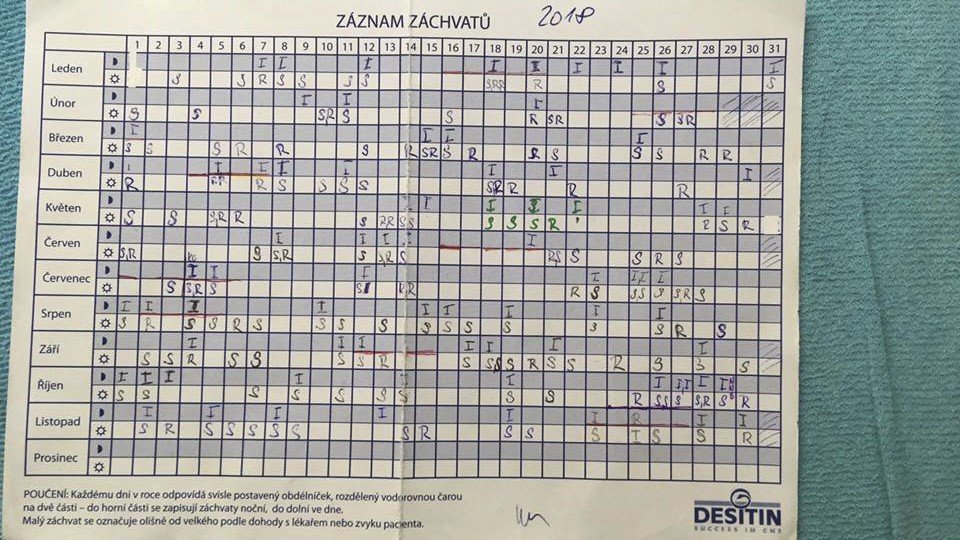 ZÁZNAM ZÁCHVATŮ 2018
1 2 3 4 5 6 7 8 9 10 11 12 13 14 15 16 17 18 19 20 21 22 23 24 25 26 27 28 29 30 31
Leden
I I I I I I I I I
S S R S S S S R S S
Únor
I I I
S S S,R S S R SR S SR
Březen
I I I I
S S S R R S R SR S R R S S S R R
Duben
I I I I I I I
R R S S S S SR R R R
Květen
I I I I I I
S S S,R R S R R S S S S S R S R
Červen
I I I I
S,R S S,R S S S S R S
Červenec
I I I I I
S S,R S S R S S S S S,R S
Srpen
I I I I I I I I I
S R S S R S S S S S S S S S S R S
Září
I I I I I I I
S S R S S S S R S S S R S S R S S S
Říjen
I I I I I I I,I I I
S S S S S S S S S R S S S S,R S R
Listopad
I I I I I I I
S R S S S S S S R S S S I S S R
Prosinec
POUČENÍ: Každému dni v roce odpovídá svisle postavený obdélníček, rozdělený vodorovnou čarou
na dvě části – do horní části se zapisují záchvaty noční, do dolní ve dne.
Malý záchvat se označuje olišně od velkého podle dohody s lékařem nebo zvyku pacienta.
DESITIN
SUCCESS IN CNS